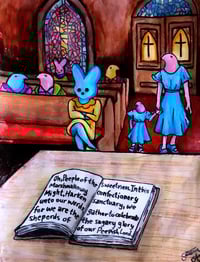 Oh, People of the
Marshmallowy
Might, Harken
unto our words
for we are the
Sheperds of
Sweetness. In this
confectionery
sanctuary, we
gather to celebrate
the sugary glory
of our Peepish Lord.